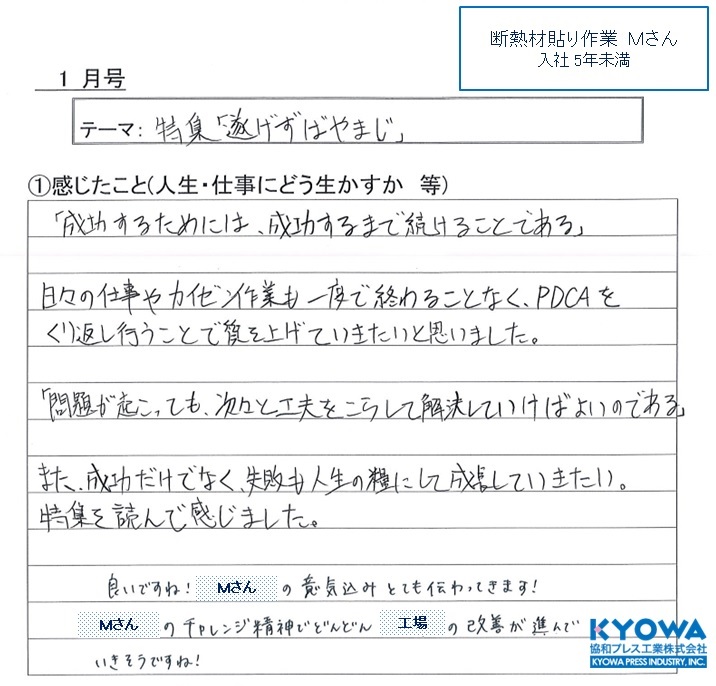 断熱材貼り作業 Mさん
入社5年未満
1 月号
テーマ: 特集「遂げずばやまじ」
①感じたこと(人生・仕事にどう生かすか 等)
「成功するためには、成功するまで続けることである」
日々の仕事やカイゼン作業も一度で終わることなく、PDCAを
くり返し行うことで質を上げていきたいと思いました。
「問題が起こっても、次々と工夫をこらして解決していけばよいのである」
また、成功だけでなく、失敗も人生の糧にして成長していきたい。
特集を読んで感じました。
良いですね! Mさん の意気込みとても伝わってきます!
Mさん のチャレンジ精神でどんどん 工場 の改善が進んで
いきそうですね!
KYOWA
協和プレス工業株式会社
KYOWA PRESS INDUSTRY, INC.